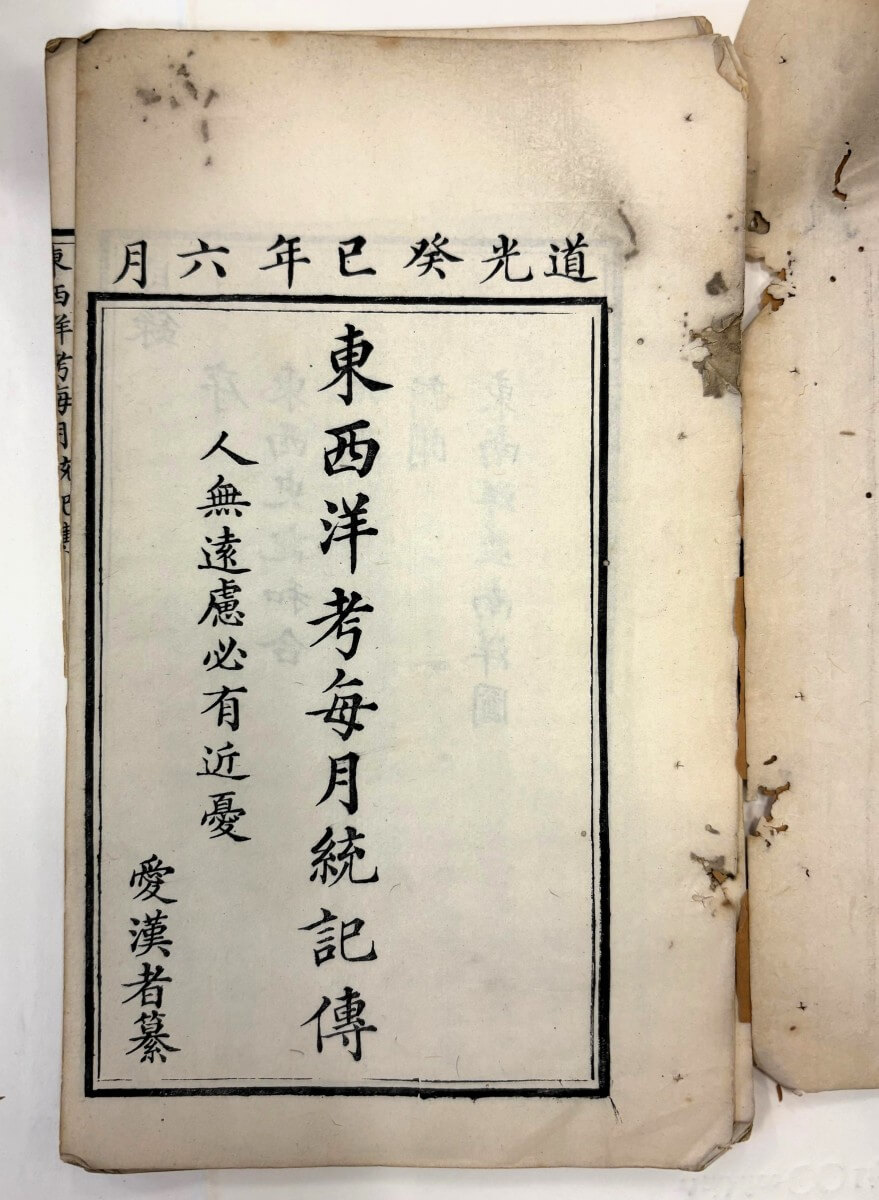 道光癸巳年六月
東西洋考每月統記傳
人無遠慮必有近憂
愛漢者纂
東西洋考每月統記傳